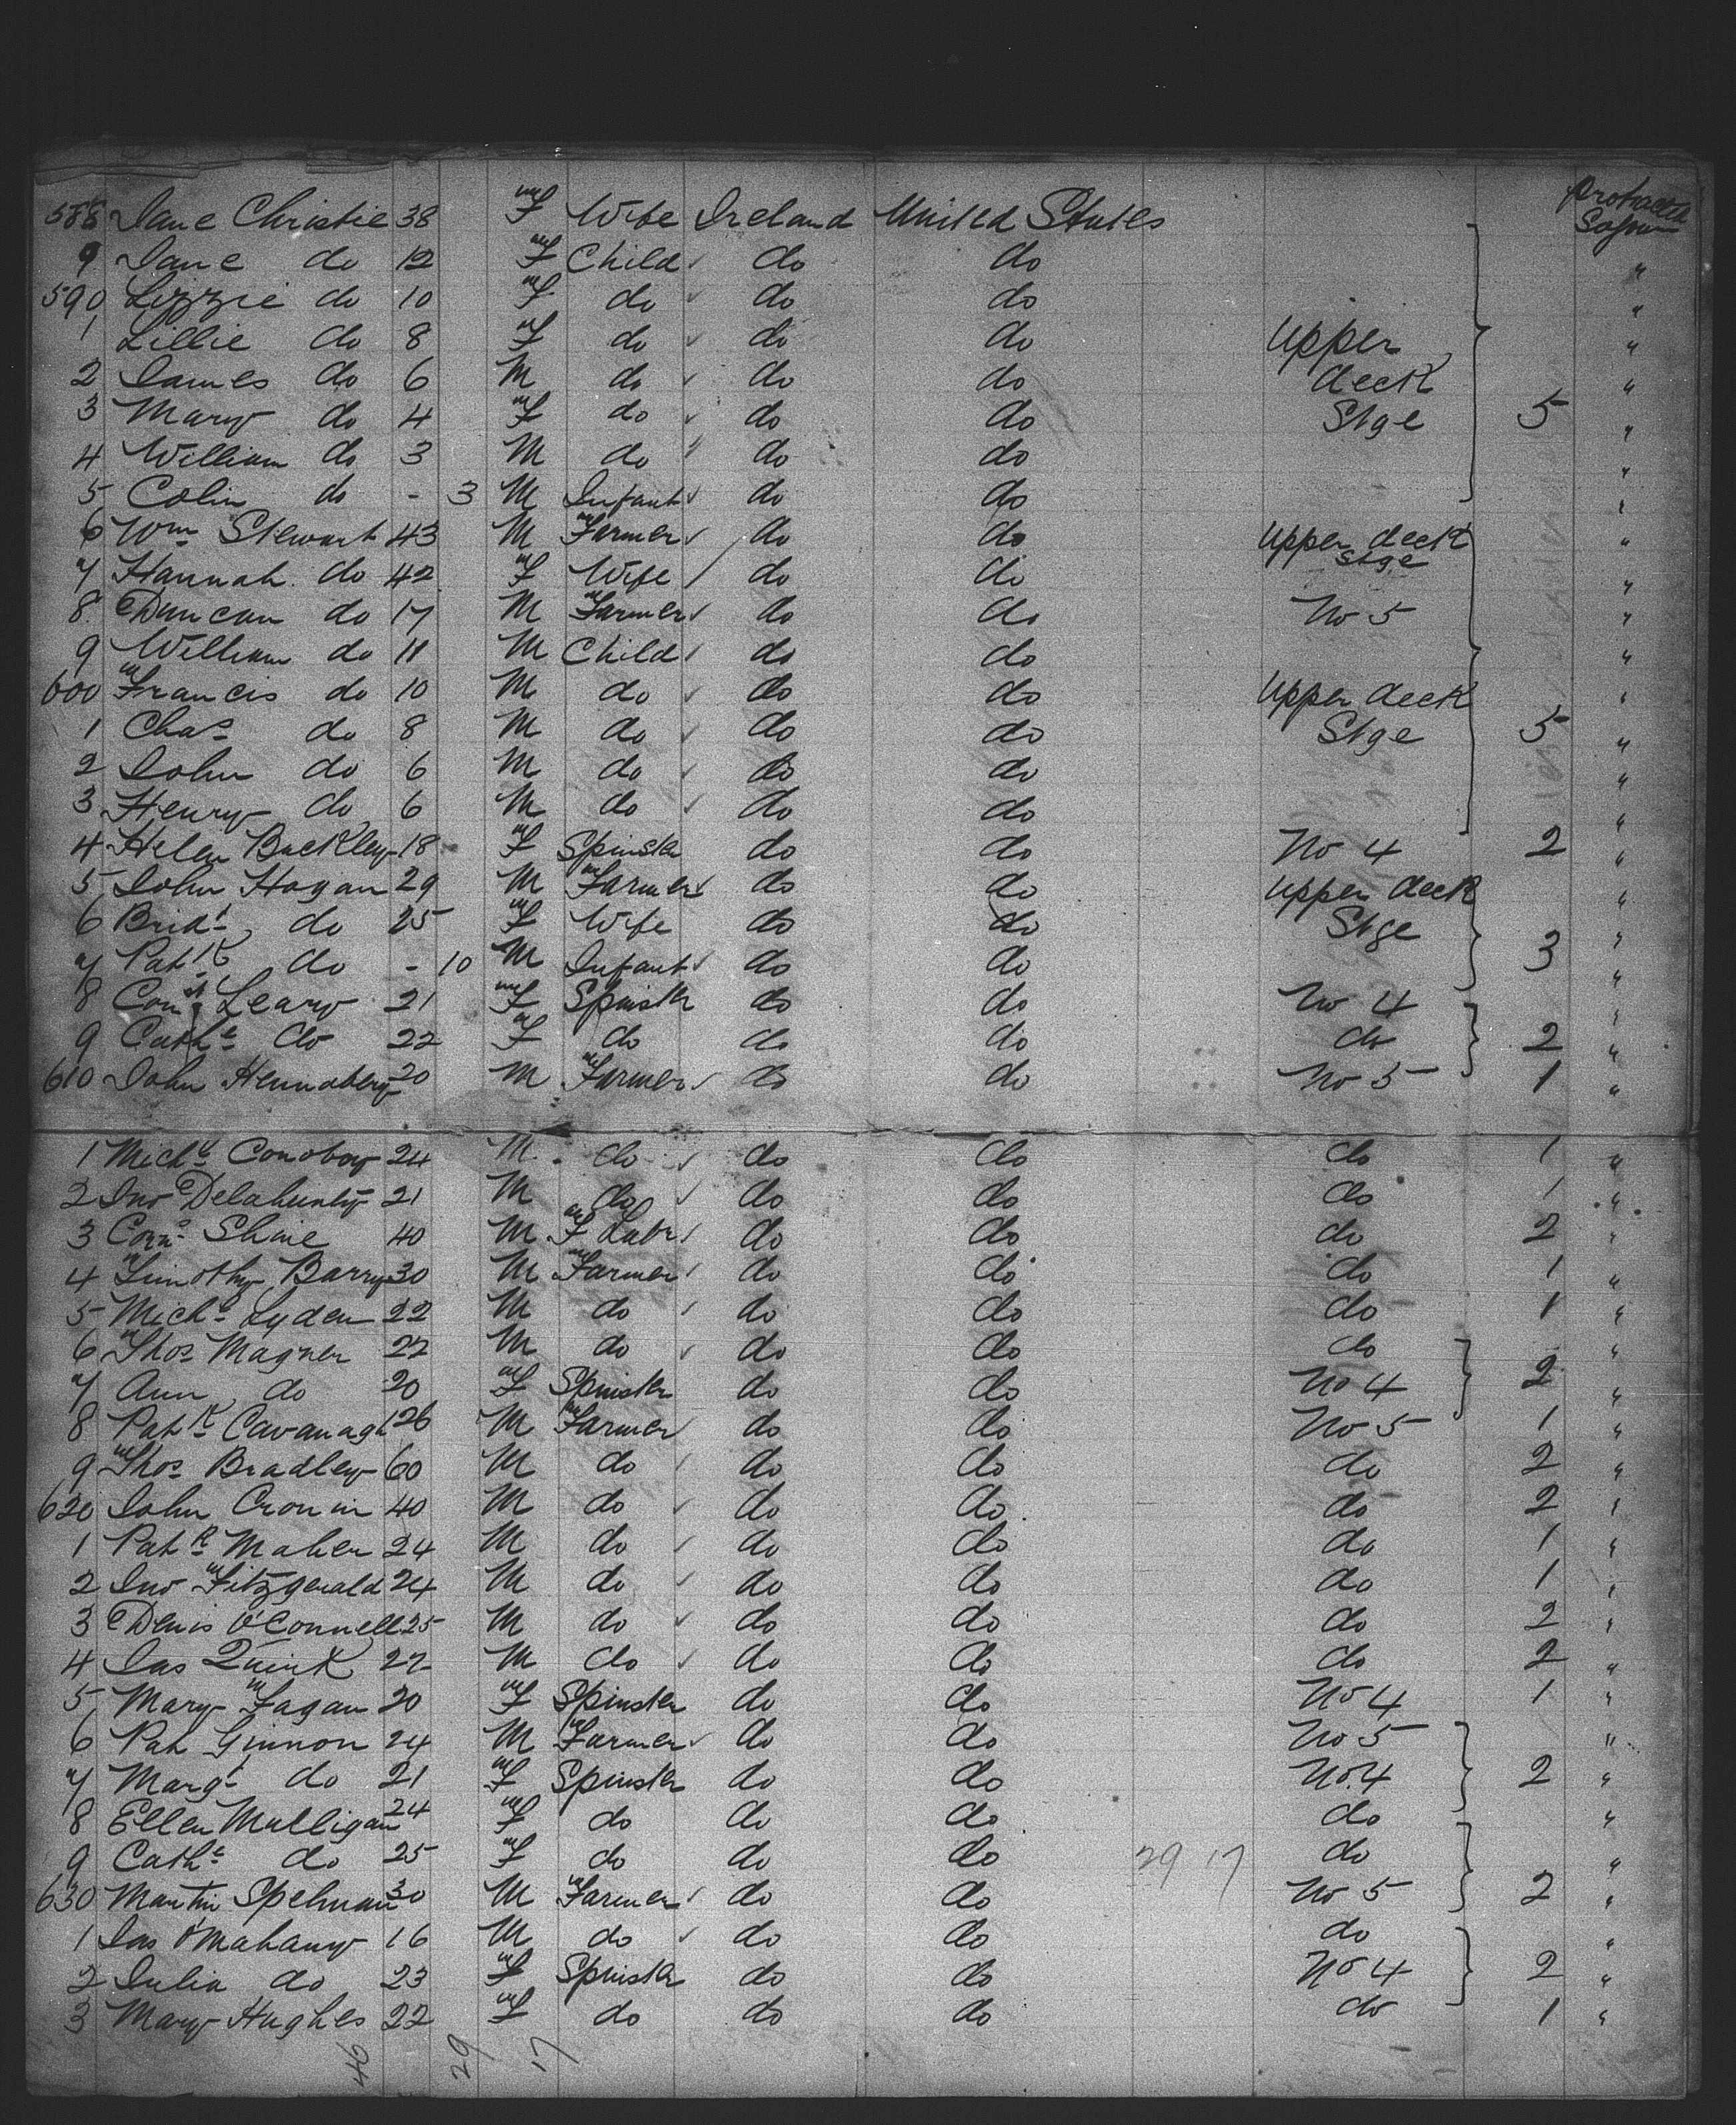 588 Jane Christie 38 F Wife Ireland United States protracted Sojourn
9 Jane do 12 F Child do do "
590 Lizzie do 10 F do do do "
1 Lillie do 8 F do do do Upper "
2 James do 6 M do do do deck "
3 Mary do 4 F do do do Stge 5 "
4 William do 3 M do do do "
5 Colin do - 3 M Infant do do "
6 Wm Stewart 43 M Farmer do do Upper deck Stge "
7 Hannah do 42 F Wife do do "
8 Duncan do 17 M Farmer do do No 5 "
9 William do 11 M Child do do "
600 Francis do 10 M do do do Upper deck "
1 Chas do 8 M do do do Stge 5 "
2 John do 6 M do do do "
3 Henry do 6 M do do do "
4 Helen Buckley 18 F Spinster do do No 4 2 "
5 John Hogan 29 M Farmer do do Upper deck "
6 Bridt do 25 F Wife do do Stge "
7 Patk do - 10 M Infant do do 3 "
8 Leary 21 F Spinstr do do No 4 "
9 Cathe do 22 F do do do do 2 "
610 John Hennabery 20 M Farmer do do No 5 1 "
1 Michl Conoboy 24 M do do do do 1 "
2 Jno Delahunty 21 M do do do do 1 "
3 Corns Shine 40 M F Labr do do do 2 "
4 Timothy Barry 30 M Farmer do do do 1 "
5 Michl Lyden 22 M do do do do 1 "
6 Thos Magner 22 M do do do do "
7 Ann do 20 F Spinster do do No 4 2 "
8 Patk Cavanagh 26 M Farmer do do No 5 1 "
9 Thos Bradley 60 M do do do do 2 "
620 John Cronin 40 M do do do do 2 "
1 Patk Maher 24 M do do do do 1 "
2 Jno Fitzgerald 24 M do do do do 1 "
3 Denis O'Connell 25 M do do do do 2 "
4 Jas Quirk 22 M do do do do 2 "
5 Mary Fagan 20 F Spinster do do No 4 1 "
6 Pat Ginnon 24 M Farmer do do No 5 "
7 Margt do 21 F Spinster do do No. 4 2 "
8 Ellen Mulligan 24 F do do do do "
9 Cathe do 25 F do do do 29 17 do "
630 Martin Spelman 30 M Farmer do do No 5 2 "
1 Jas O'Mahany 16 M do do do do "
2 Julia do 23 F Spinster do do No 4 2 "
3 Mary Hughes 22 F do do do do 1 "
46 29 17